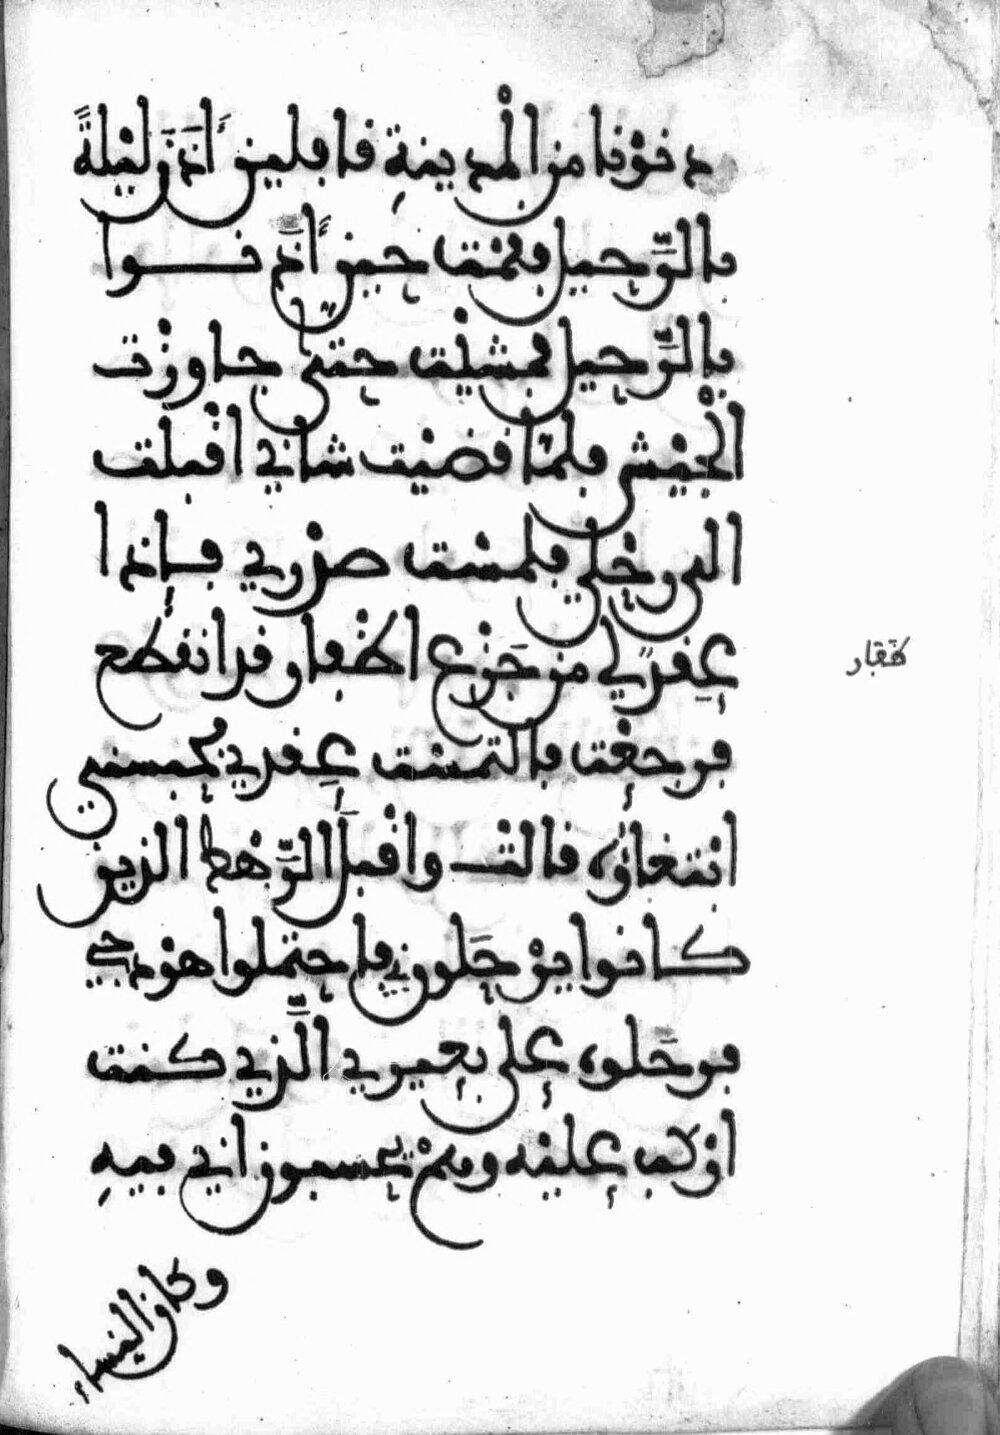 دنونا من المدينة قافلين اذن ليلة
بالرحيل فقمت حين اذنوا
بالرحيل فمشيت حتى جاوزت
الجيش فلما قضيت شاني اقبلت
الى رحلي فلمست صدري فإذا
عقد لي من جزع اظفار قد انقطع
فرجعت فالتمست عقدي فحبسني
ابتغاؤه قالت واقبل الرهط الذين
كانوا يرحلوني فاحتملوا هودجي
فرحلوه على بعيري الذي كنت
اركب عليه وهم يحسبون اني فيه
وكان النساء
ظفار